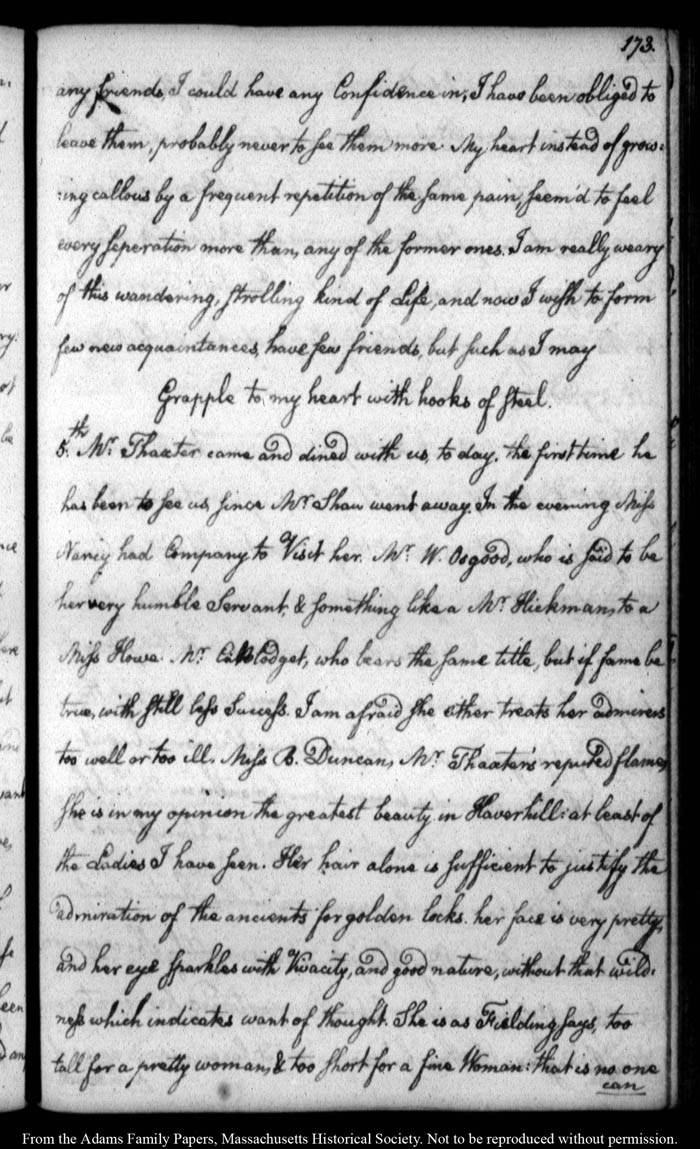 173.
any friends, I could have any Confidence in, I have been obliged to
leave them, probably never to see them more. My heart instead of grow:
:ing callous by a frequent repetition of the same pain, seem'd to feel
every seperation more than, any of the former ones. I am really weary
of this wandering, strolling kind of Life, and now I wish to form
few new acquaintances, have few friends, but such as I may
Grapple to, my heart with hooks of steel.
5.th Mr. Thaxter came and dined with us, to day. the first time he
has been to see us, since Mr. Shaw went away. In the evening Miss
Nancy had Company to Visit her. Mr. W. Osgood, who is said to be
her very humble Servant, & something like a Mr. Hickman, to a
Miss Howe. Mr. Blodget, who bears the same title, but if fame be
true, with still less Success. I am afraid she either treats her admirers
too well or too ill. Miss B. Duncan, Mr. Thaxter's reputed flame,
she is in my opinion the greatest beauty in Haverhill: at least of
the Ladies I have seen. Her hair alone is sufficient to justify the
admiration of the ancients for golden locks. her face is very pretty,
and her eye sparkles with Vivacity, and good nature, without that wild:
ness which indicates want of thought. She is as Fielding says, too
tall for a pretty woman, & too short for a fine Woman: that is no one
can
From the Adams Family Papers, Massachusetts Historical Society. Not to be reproduced without permission.